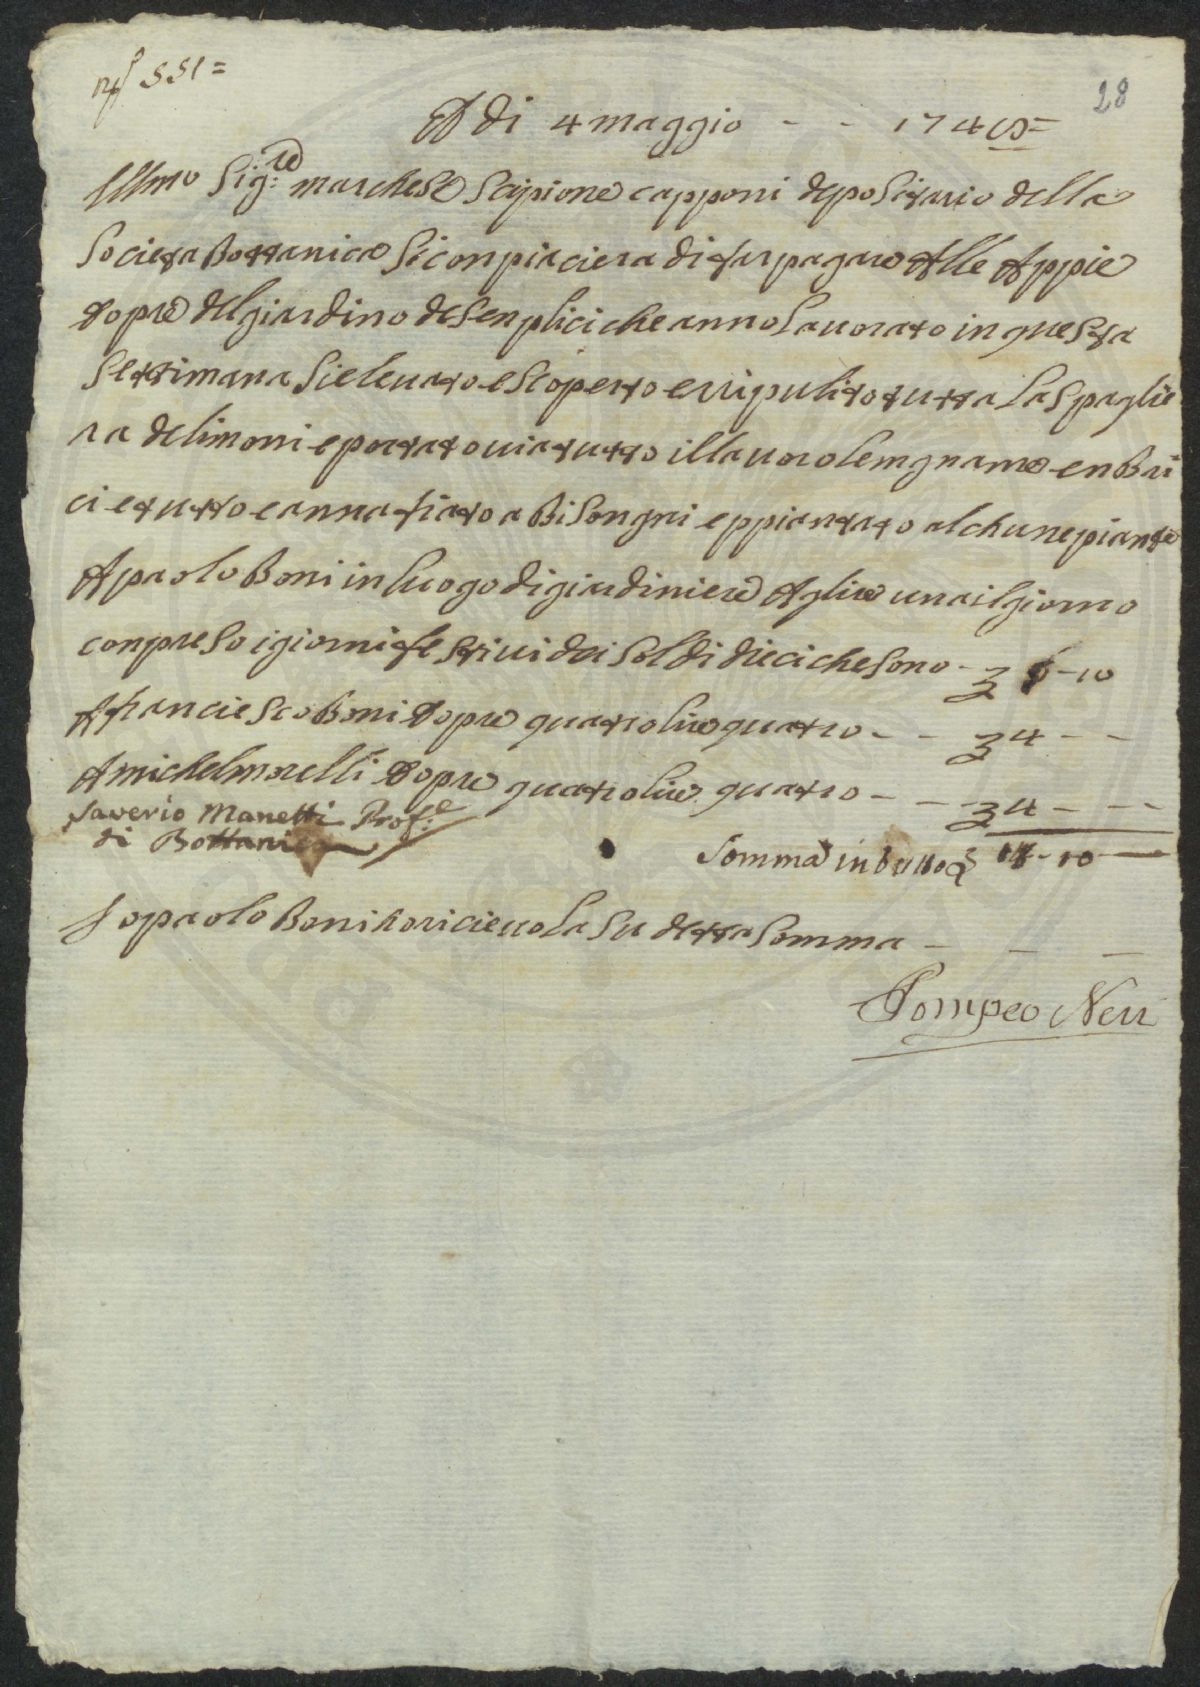 551=
28
A di 4 maggio - - 174
Illmo Sig:re marchese Scipione capponi depositario della
Societa Bottanica Si conpiaciera di far pagare Alle Appie
dopre del giardino de Senplici che anno Lavorato in questa
Settimana Si e levato e scoperto e rripulito tutta La Spaglie
ra de limoni e portato via tutto il lavoro lemgname enBri
ci e tutto e annafiato a Bisongni e ppiantato alchune piante
A paolo Boni in luogo di giardiniere A lire una il giorno
conpreso i giorni festivi dei soldi dieci che sono - 6-10
A franciesco Boni dopre quatro lire quatro - - 4 - -
A michel morelli dopre quatro lire quatro - - 4 - - -
Saverio Manetti Prof:e
di Bottanica
Somma in tutto 14-10
Io paolo Boni ho ricievo La Su detta Somma - - -
Pompeo Neri